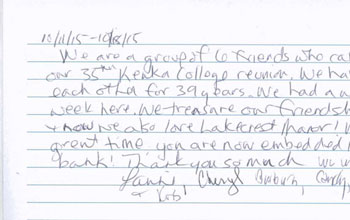 10/11/15-10/18/15
We are a group of 6 friends who
our 35th Keuka College reunion. We ha
each other for 39 years. We had a
week here. We treasure our friendsh
& now we also love Lakecrest Manor!
great time you are now embedded
bank! Thank you so much
Cheryl
&